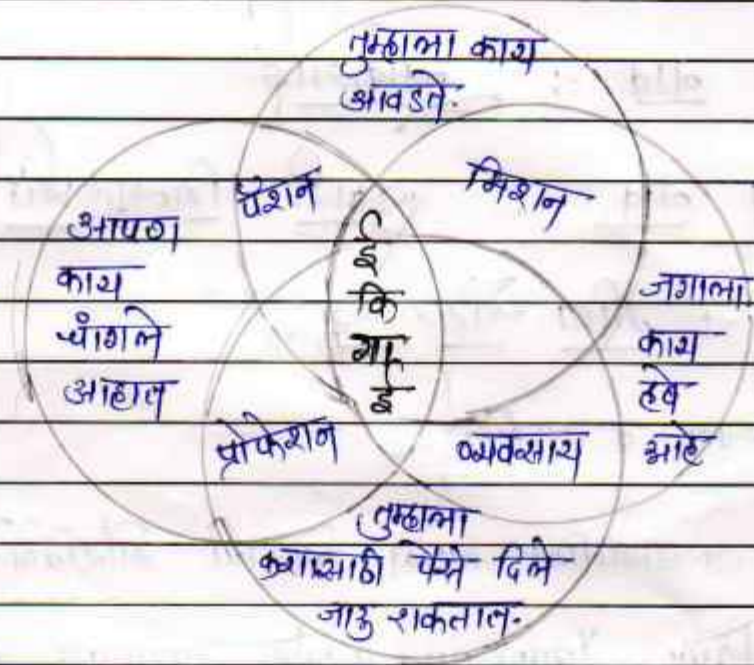 तुम्हाला काय
आवडते.
पॅशन
मिशन
आपण
काय
चांगले
आहात
ई
कि
गा
ई
जगाला
काय
हवे
आहे
प्रोफेशन
व्यवसाय
तुम्हाला
कशासाठी पैसे दिले
जाऊ शकतात.